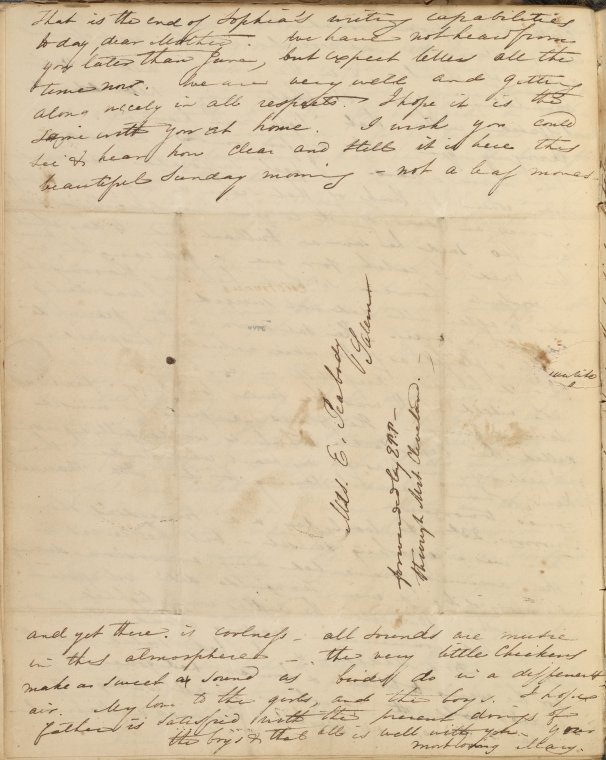 That is the end of Sophia's writing capabilities
to day, dear Mother. We have not heard from
you later than June, but expect letters all the
time now. We are very well and getting
along nicely in all respects. I hope it is the
same with you at home. I wish you could
see & hear how clear and still it is here this
beautiful Sunday morning – not a leaf moves
Mrs. E. Peabody
Salem
forwarded by E P P –
through Mrs. Cleveland. –
and yet there is coolness – all sounds are music
in this atmosphere – the very little chickens
make as sweet a sound as birds do in a different
air. My love to the girls, and the boys. I hope
father is satisfied with the present doings of
the boys & that all is well with you – your
most loving Mary.